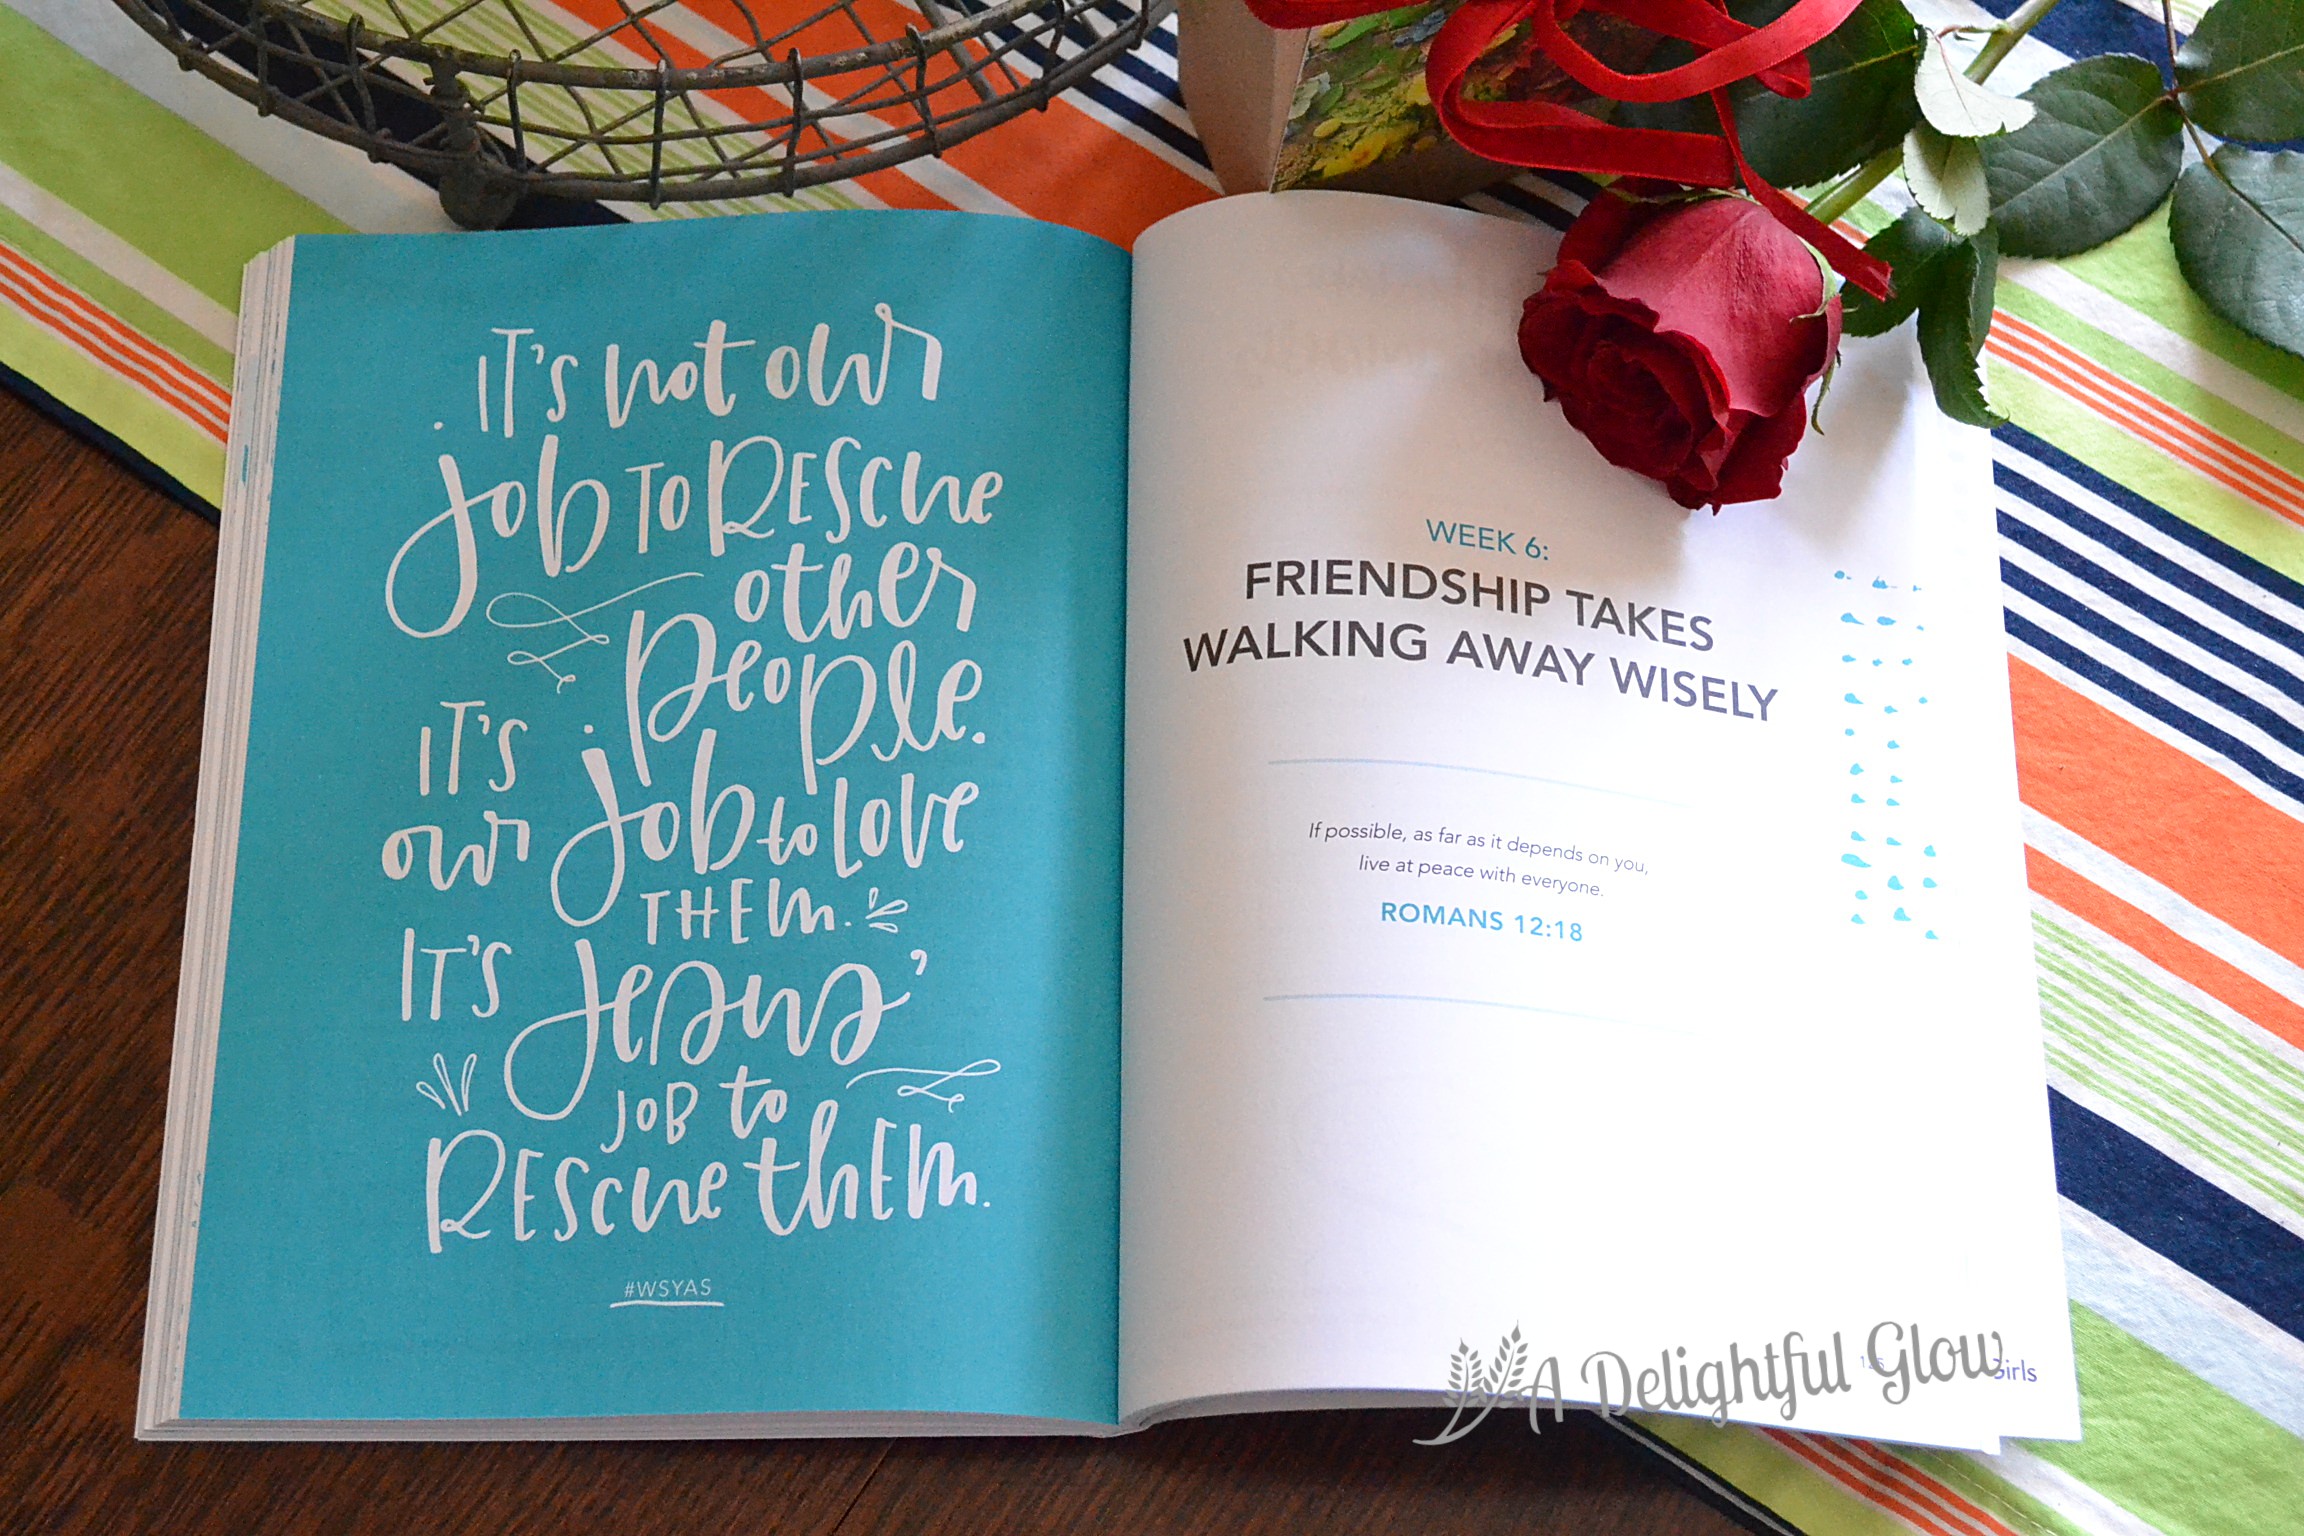 IT'S not our
job TO RESCUE
other
people.
IT'S
our job to Love
THEM.
IT'S Jesus'
JOB to
RESCUE thEm.
#WSYAS
WEEK 6:
FRIENDSHIP TAKES
WALKING AWAY WISELY
If possible, as far as it depends on you,
live at peace with everyone.
ROMANS 12:18
A Delightful Glow